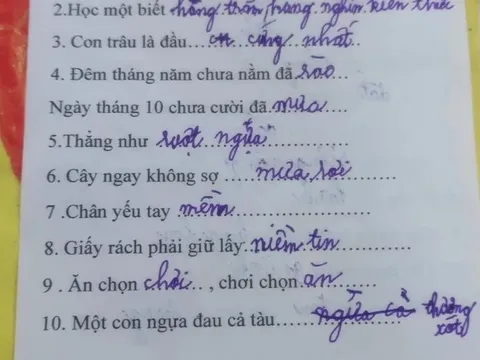 2.Học một biết hàng trăm, hàng nghìn kiến thức
3. Con trâu là đầu...... cứng nhất...
4. Đêm tháng năm chưa nằm đã sáo...
Ngày tháng 10 chưa cười đã mưa.......
5.Thẳng như ruột ngựa.....................
6. Cây ngay không sợ .....mưa rơi.......
7 .Chân yếu tay mềm.......................
8. Giấy rách phải giữ lấy niềm tin............
9 . Ăn chọn chơi... , chơi chọn ăn..........
10. Một con ngựa đau cả tàu................... thương xót